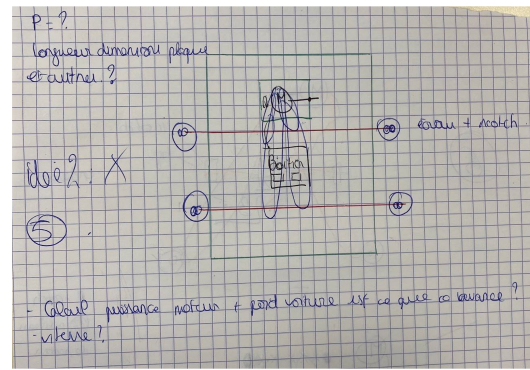 P = ?
longueur dimensions plaque
et autres ?
M
écrou + scotch
Boîtier
idé 2. X
5
- Calcul puissance moteur + poid voiture est ce que ça avance ?
- vitesse ?